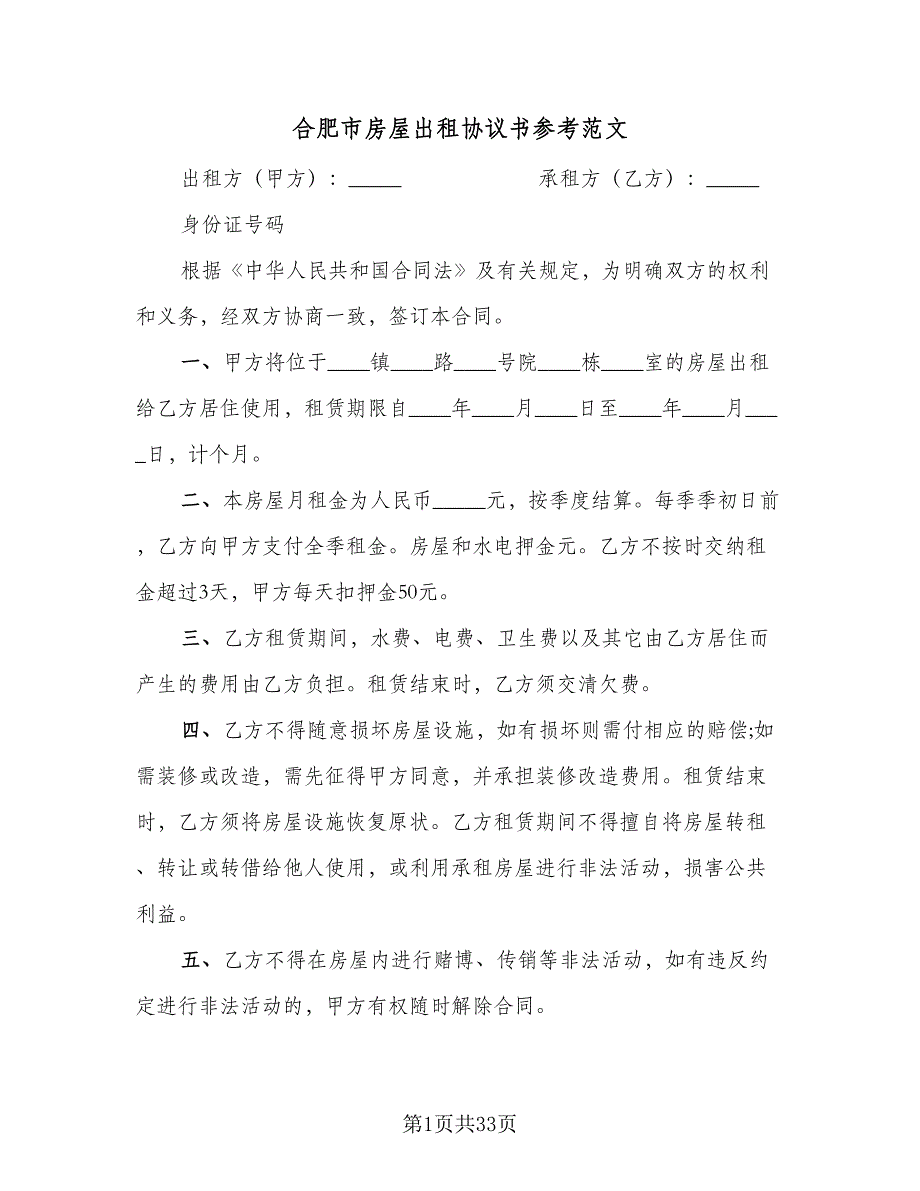 合肥市房屋出租协议书参考范文
出租方（甲方）：_____ 承租方（乙方）：_____
身份证号码
根据《中华人民共和国合同法》及有关规定，为明确双方的权利
和义务，经双方协商一致，签订本合同。
一、甲方将位于____镇____路____号院____栋____室的房屋出租
给乙方居住使用，租赁期限自____年____月____日至____年____月___
_日，计个月。
二、本房屋月租金为人民币_____元，按季度结算。每季季初日前
，乙方向甲方支付全季租金。房屋和水电押金元。乙方不按时交纳租
金超过3天，甲方每天扣押金50元。
三、乙方租赁期间，水费、电费、卫生费以及其它由乙方居住而
产生的费用由乙方负担。租赁结束时，乙方须交清欠费。
四、乙方不得随意损坏房屋设施，如有损坏则需付相应的赔偿;如
需装修或改造，需先征得甲方同意，并承担装修改造费用。租赁结束
时，乙方须将房屋设施恢复原状。乙方租赁期间不得擅自将房屋转租
、转让或转借给他人使用，或利用承租房屋进行非法活动，损害公共
利益。
五、乙方不得在房屋内进行赌博、传销等非法活动，如有违反约
定进行非法活动的，甲方有权随时解除合同。
第1页共33页